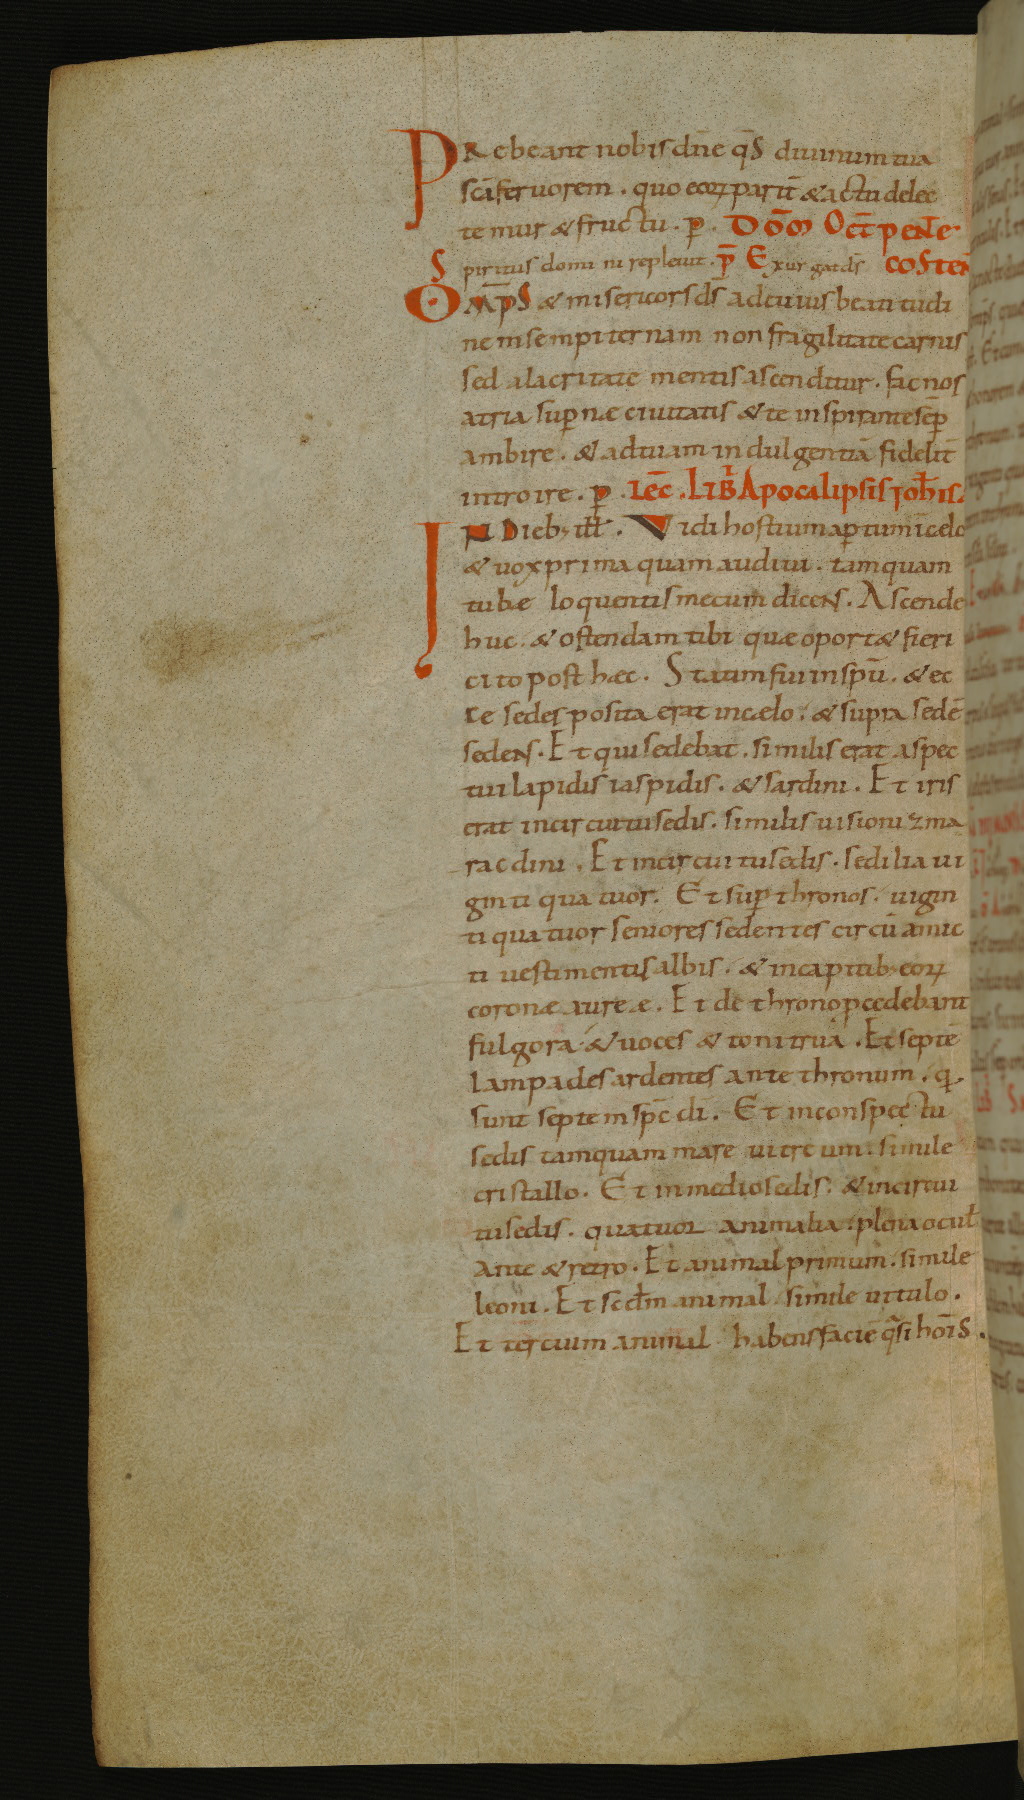 PRebeant nobis dn̄e qs̄ diuinum tua
scā feruorem . quo eoꝝ parit̄ & actu delec
temur & fructu . p̄ . Dōm Oct̄ penꞇe
Spiritus domini repleuit . p̄ Exurgat ds̄ costeN
OMP̄S & misericors ds̄ ad cuius beatitudi
nem sempiternam non fragilitate carnis
sed alacritate mentis ascenditur . fac nos
atria sup̄næ ciuitatis & te inspirante sēp
ambire . & ad tuam indulgentiā fidelit̄
introire . p̄ . Lec̄ . Lib̄ Apocalipsis Ioh̄is .
IN Dieb; ill̄ . Vidi hostium ap̄tum ī celo
& uox prima quam audiui . tamquam
tubæ loquentis mecum dicens . Ascende
huc . & ostendam tibi quæ oport& fieri
cito post hæc . Statim fui in spū . & ec
ce sedes posita erat in cælo . & supra sedē
sedens . Et qui sedebat . similis erat aspec
tui lapidis iaspidis . & sardini . Et iris
erat in circuitu sedis . similis uisioni zma
racdini . Et in circuitu sedis . sedilia ui
ginti quatuor . Et sup̄ thronos . uigin
ti quatuor seniores sedentes circū amic
ti uestimentis albis . & in capitib; eoꝝ
coronæ aureæ . Et de throno ꝓcedebant
fulgora & uoces & tonitrua . Et septē
lampades ardentes ante thronum . q̄
sunt septem sp̄c dī . Et in conspectu
sedis tamquam mare uitreum . simile
cristallo . Et in medio sedis . & in circui
tu sedis . quatuor animalia . plena ocul̄
ante & retro . Et animal primum . simile
leoni . Et sc̄dm animal simile uitulo .
Et tercium animal habens faciē q̄si hōis .